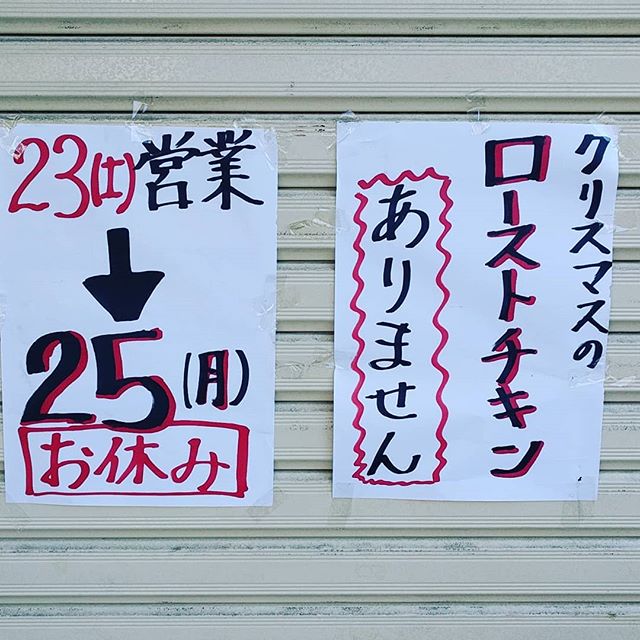 23(土)営業
↓
25(月)
お休み
クリスマスの
ローストチキン
ありません